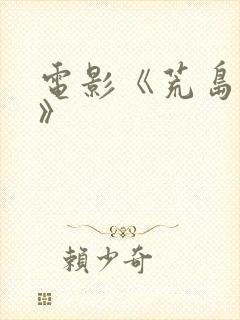 電影《荒島
》
賴少奇